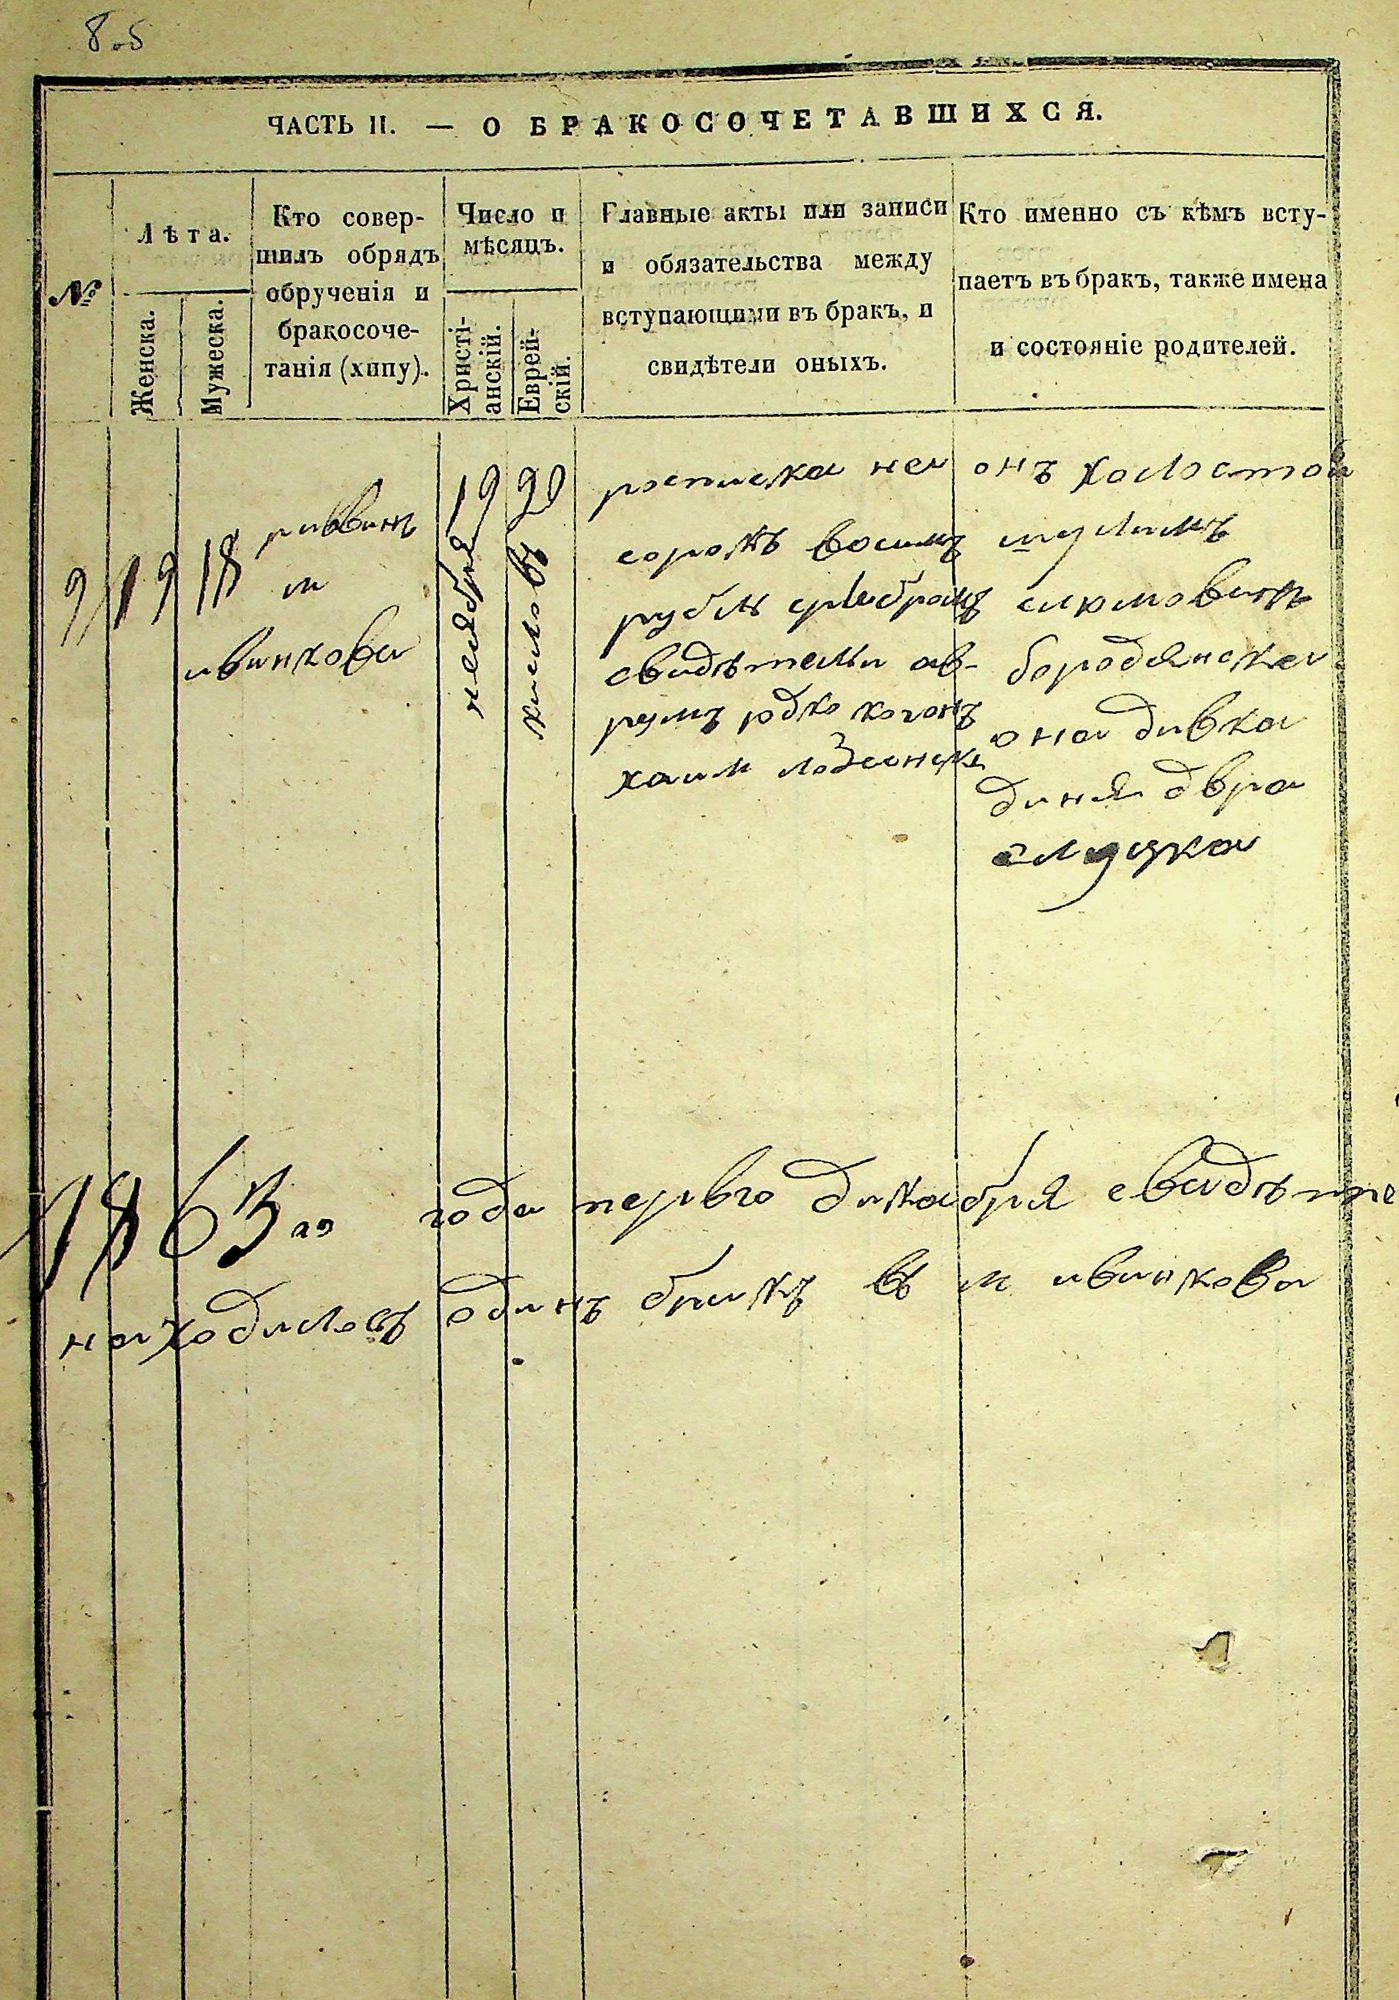 8.5
ЧАСТЬ II. — О БРАКОСОЧЕТАВШИХСЯ.
№
Лѣта.
Женска.
Мужеска.
Кто совер-
шилъ обрядъ
обрученія и
бракосоче-
танія (хипу).
Число и
мѣсяцъ.
Христі-
анскій.
Еврей-
скій.
Главные акты или записи
и обязательства между
вступающими въ бракъ, и
свидѣтели оныхъ.
Кто именно съ кѣмъ всту-
паетъ въ бракъ, также имена
и состояніе родителей.
9
19
18
равинъ
м
ивинкова
19
ноября
20
кислевъ
росписка на
сорокъ восимъ
рубли
свидѣтели ав-
румъ юдко коганъ
хаим
онъ холостой
шулимъ
шлюмовичъ
бородянска
она дивка
диня двра
слуцка
1863го года первго дикабря свидѣте
находилось одинъ бракъ въ м ивинкова